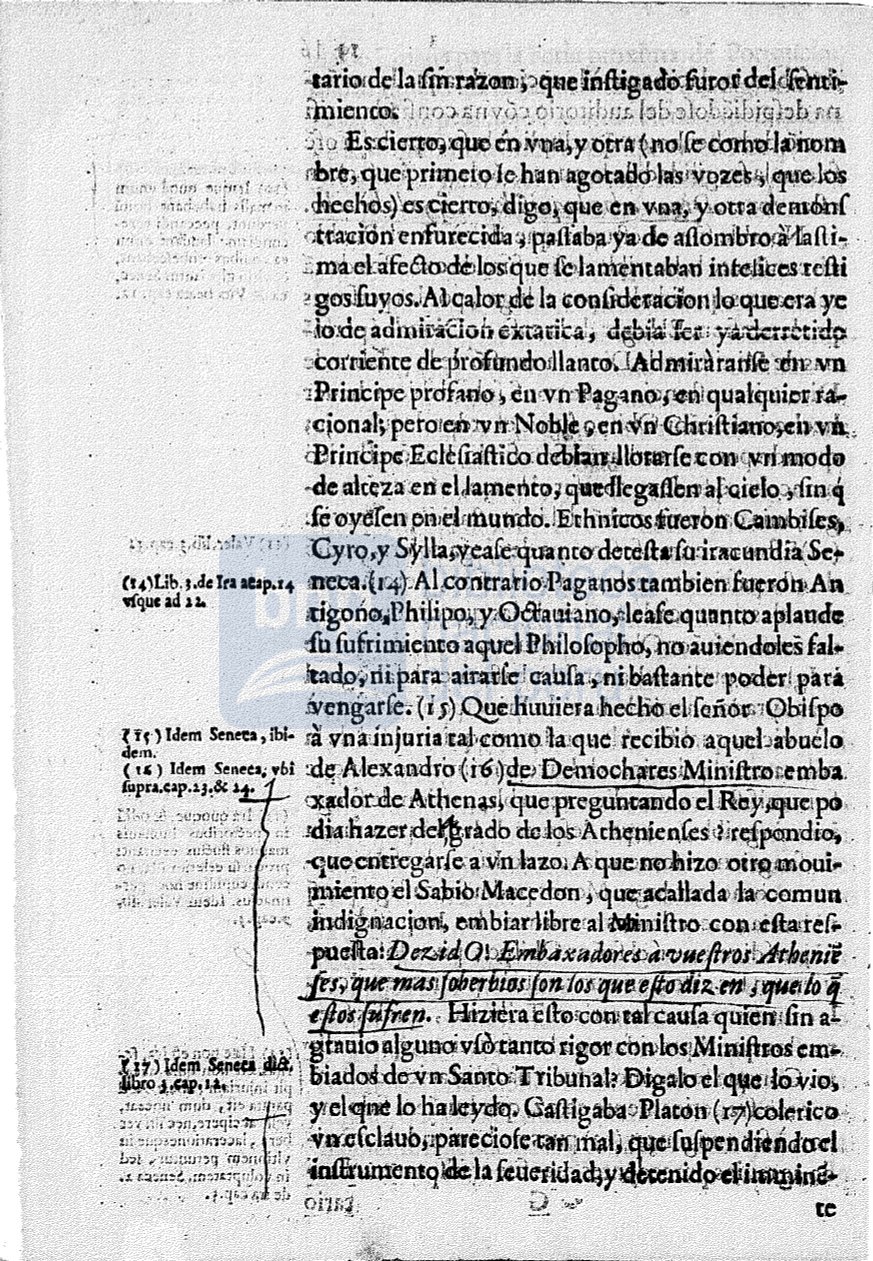 tario de la sin razon, que instigado furor del senti-
miento.
Es cierto, que en vna, y otra (no se como la nom
bre, que primero se han agotado las vozes, que los
hechos) es cierto, digo, que en vna, y otra demons
tracion enfurecida, passaba ya de assombro à lasti-
ma el afecto de los que se lamentaban infelices testi
gos suyos. Al calor de la consideracion lo que era ye
lo de admiracion extatica, debia ser ya derretido
corriente de profundo llanto. Admiràranse en vn
Principe profano, en vn Pagano, en qualquier ra-
cional; pero en vn Noble, en vn Christiano, en vn
Principe Eclesiastico debian llorarse con vn modo
de alteza en el lamento, que llegassen al cielo, sin q̃
se oyesen en el mundo. Ethnicos fueron Cambises,
Cyro, y Sylla, vease quanto detesta su iracundia Se-
(14) Lib. 3. de Ira a cap. 14
vsque ad 22.
neca. (14) Al contrario Paganos tambien fueron An
tigono, Philipo, y Octauiano, lease quanto aplaude
su sufrimiento aquel Philosopho, no auiendoles fal-
tado, ni para airarse causa, ni bastante poder para
vengarse. (15) Que huuiera hecho el señor Obispo
(15) Idem Seneca, ibi-
dem.
à vna injuria tal como la que recibió aquel abuelo
(16) Idem Seneca, vbi
supra. cap. 23. & 24.
de Alexandro (16) de Demochares Ministro emba
xador de Athenas, que preguntando el Rey, que po
dia hazer del grado de los Athenienses? respondio,
que entregarse a vn lazo. A que no hizo otro moui-
miento el Sabio Macedon, que acallada la comun
indignacion, embiar libre al Ministro con esta res-
puesta: Dezid O! Embaxadores à vuestros Atheniẽ
ses, que mas soberbios son los que esto dizen, que lo q̃
estos sufren. Hiziera esto con tal causa quien sin a-
grauio alguno vsò tanto rigor con los Ministros em-
(17) Idem Seneca dict.
libro 3. cap. 12.
biados de vn Santo Tribunal? Digalo el que lo vio,
y el que lo ha leydo. Castigaba Platon (17) colerico
vn esclauo, pareciose tan mal, que suspendiendo el
instrumento de la seueridad, y detenido el imminẽ-
te